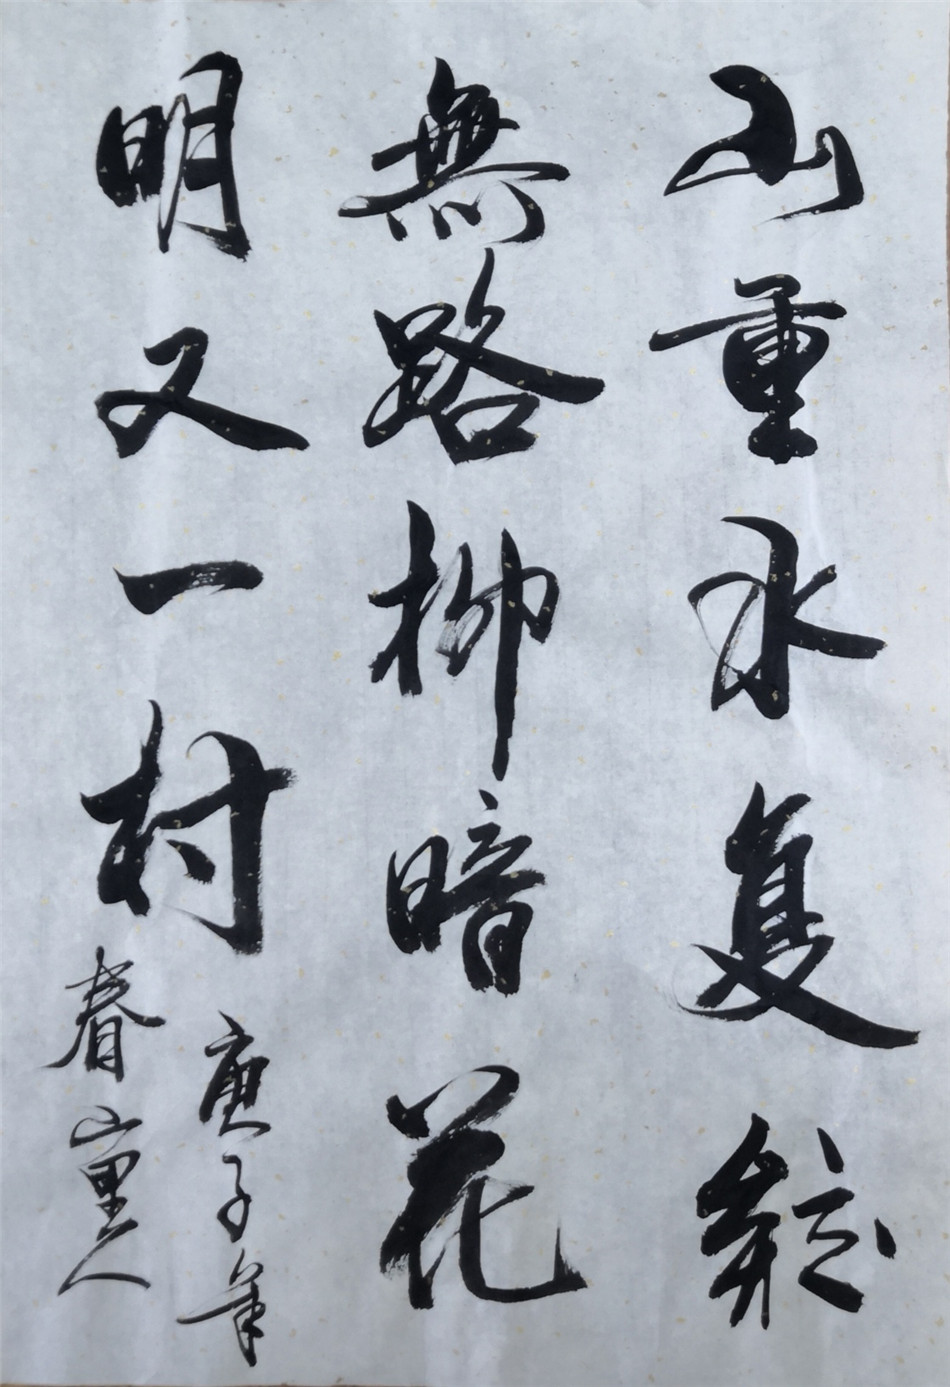 山重水复疑
無路柳暗花
明又一村
庚子年
春山里人